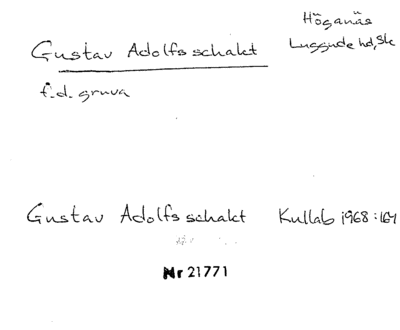 Höganäs
Gustav Adolfs schakt
Luggude hd, Sk
f.d. gruva
Gustav Adolfs schakt Kullab 1968:164
Nr 21771